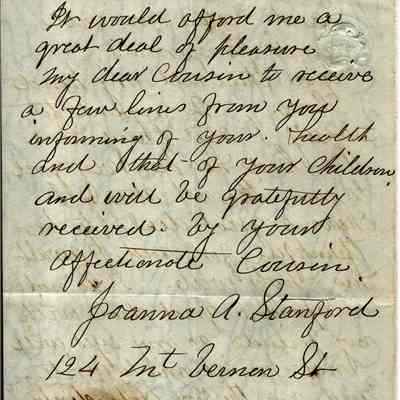 It would afford me a
great deal of pleasure
my dear Cousin to receive
a few lines from you
informing of your health
and that of your Children
and will be gratefully
received by your
affectionate Cousin
Joanna A. Stanford
124 Mt Vernon St